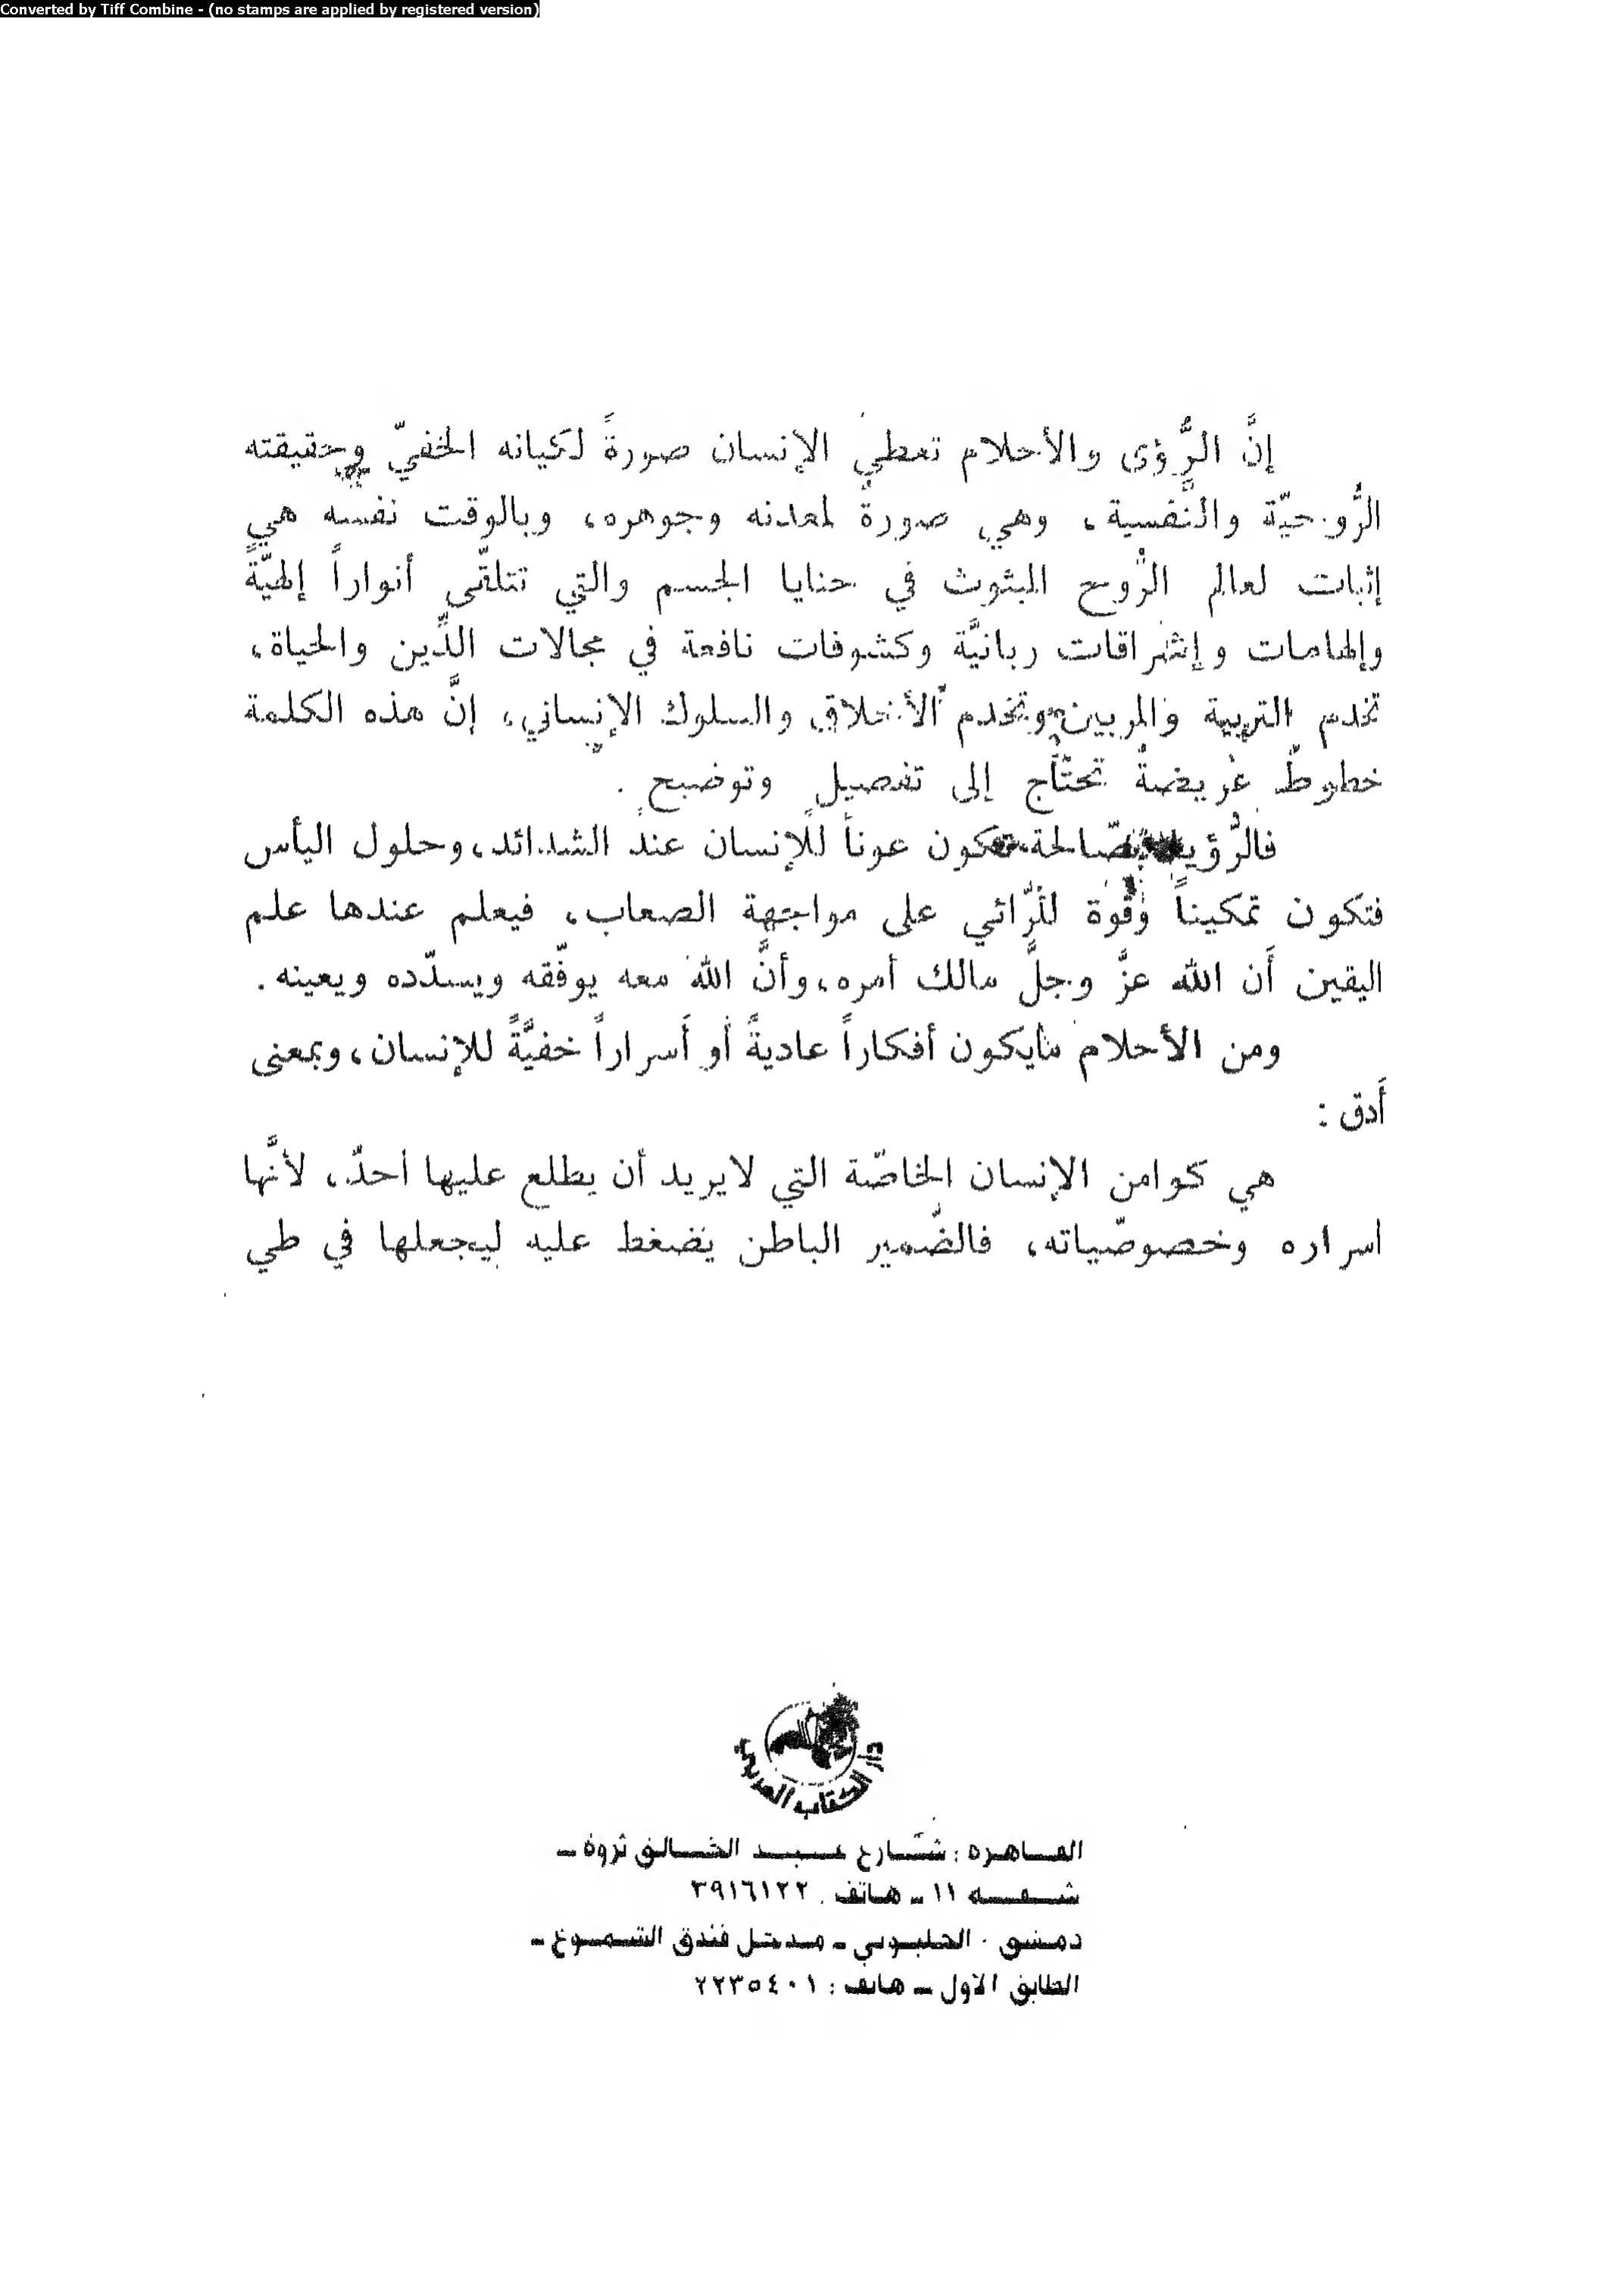 Converted by Tiff Combine - (no stamps are applied by registered version)
إنَّ الرُّؤى والأحلام تعطي الإنسان صورةً لكيانه الخفيّ وحقيقته
الرُّوحيّة والنَّفسية، وهي صورةٌ لمعدنه وجوهره، وبالوقت نفسه هي
إثبات لعالم الرُّوح المبثوث في حنايا الجسم والتي تتلقّى أنواراً إلهيَّةً
وإلهامات وإشراقات ربانيَّة وكشوفات نافعة في مجالات الدِّين والحياة،
تخدم التربية والمربين وتخدم الأخلاق والسلوك الإنساني، إنَّ هذه الكلمة
خطوطٌ عريضةٌ تحتاج إلى تفصيلٍ وتوضيحٍ .
فالرُّؤيا الصّالحة تكون عوناً للإنسان عند الشدائد، وحلول اليأس
فتكون تمكيناً وقوة للرّائي على مواجهة الصعاب، فيعلم عندها علم
اليقين أَن الله عزَّ وجلَّ مالك أمره، وأنَّ الله معه يوفّقه ويسدّده ويعينه .
ومن الأحلام مايكون أفكاراً عاديةً أو أَسراراً خفيَّةً للإنسان، وبمعنى
أَدق :
هي كوامن الإنسان الخاصّة التي لايريد أن يطلع عليها أحدٌ، لأنَّها
اسراره وخصوصّياته، فالضّمير الباطن يضغط عليه ليجعلها في طي
دار الكتاب العربي
القاهرة : شارع عبد الخالق ثروة -
شقة ١١ - هاتف . ٣٩١٦١٢٢
دمشق . الحلبوني - مدخل فندق الشموع -
الطابق الاول - هاتف : ٢٢٣٥٤٠١